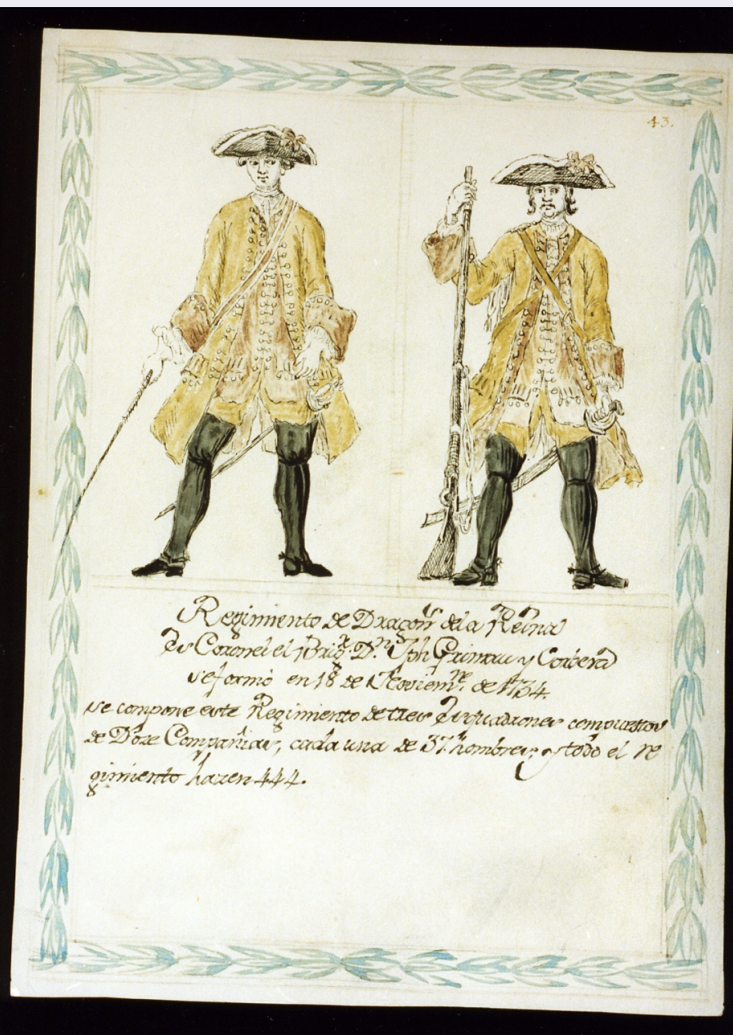 43.
Regimiento de Dragon.s de la Reina
Es Coronel el Brig.r D.n Jph Grimau y Corbera
se formó en 18 de Noviem.re de 1734.
se compone este Regimiento de tres Esquadrones compuestos
de Doze Compañias, cada una de 37 hombres; y todo el re
gimiento hazen 444.